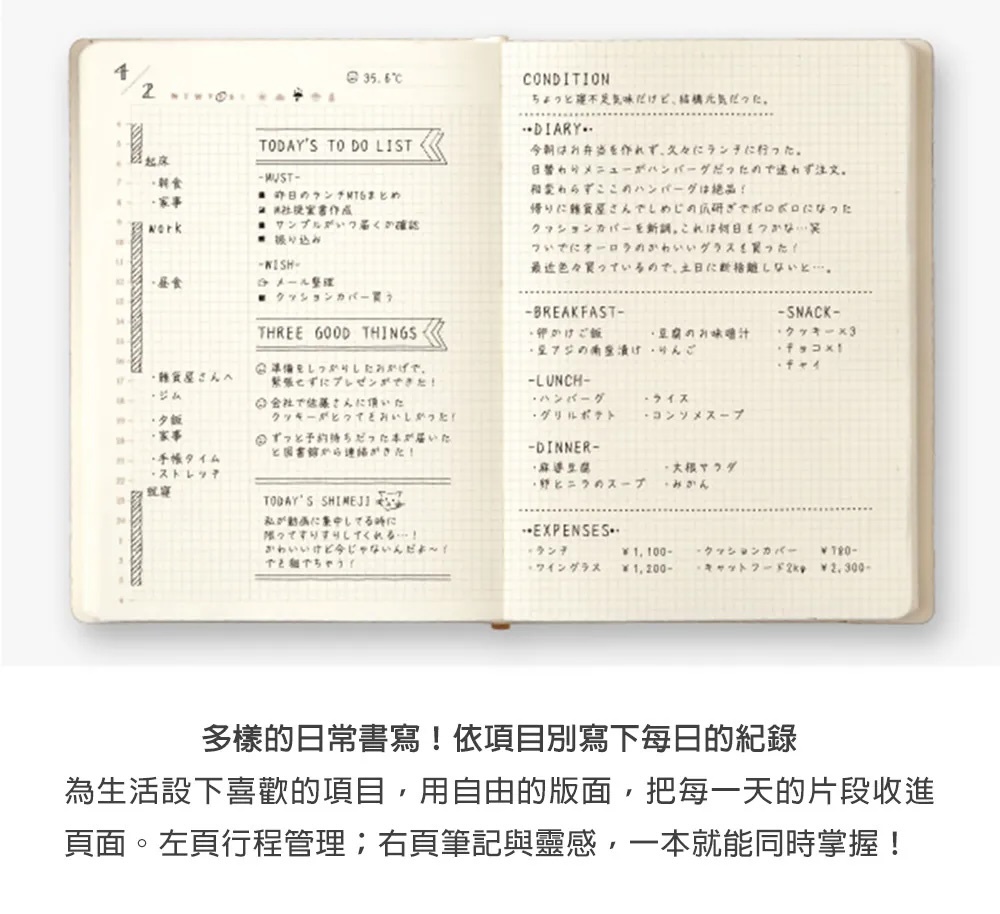 4/2
35.6℃
起床
・朝食
・家事
Work
・昼食
・雑貨屋さんへ
・ジム
・夕飯
・家事
・手帳タイム
・ストレッチ
就寝
TODAY'S TO DO LIST
-MUST-
昨日のランチMTGまとめ
H社提案書作成
サンプルがいつ届くか確認
振り込み
-WISH-
メール整理
クッションカバー買う
THREE GOOD THINGS
準備をしっかりしたおかげで、
緊張せずにプレゼンができた!
会社で佐藤さんに頂いた
クッキーがとってもおいしかった!
ずっと予約待ちだった本が届いた
と図書館から連絡がきた!
TODAY'S SHIMEJI
私が動画に集中してる時に
限ってすりすりしてくれる…!
かわいいけど今じゃないんだよ～!
でも撫でちゃう!
CONDITION
ちょっと寝不足気味だけど、結構元気だった。
・・DIARY・・
今朝はお弁当を作れず、久々にランチに行った。
日替わりメニューがハンバーグだったので迷わず注文。
相変わらずここのハンバーグは絶品!
帰りに雑貨屋さんでしめじの爪研ぎでボロボロになった
クッションカバーを新調。これは何日もつかな…笑
ついでにオーロラのかわいいグラスも買った!
最近色々買っているので、土日に断捨離しないと…。
-BREAKFAST-
・卵かけご飯 ・豆腐のお味噌汁
・豆アジの南蛮漬け ・りんご
-SNACK-
・クッキー×3
・チョコ×1
・チャイ
-LUNCH-
・ハンバーグ ・ライス
・グリルポテト ・コンソメスープ
-DINNER-
・麻婆豆腐 ・大根サラダ
・卵とニラのスープ ・みかん
・・EXPENSES・・
・ランチ ¥1,100- ・クッションカバー ¥780-
・ワイングラス ¥1,200- ・キャットフード2kg ¥2,300-
多樣的日常書寫！依項目別寫下每日的紀錄
為生活設下喜歡的項目，用自由的版面，把每一天的片段收進
頁面。左頁行程管理；右頁筆記與靈感，一本就能同時掌握！